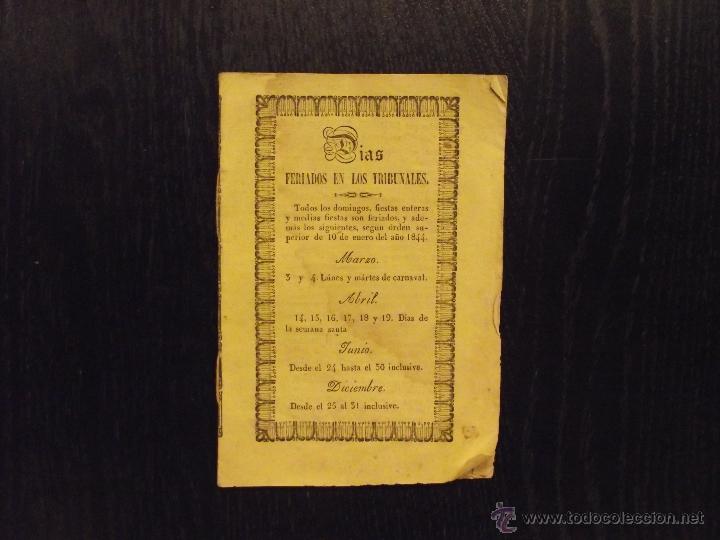 Dias
FERIADOS EN LOS TRIBUNALES.
Todos los domingos, fiestas enteras
y medias fiestas son feriados, y ade-
más los siguientes, segun órden su-
perior de 10 de enero del año 1844.
Marzo.
3 y 4. Lúnes y mártes de carnaval.
Abril.
14, 15, 16, 17, 18 y 19. Dias de
la semana santa
Junio.
Desde el 24 hasta el 30 inclusive.
Diciembre.
Desde el 25 al 31 inclusive.
© www.todocoleccion.net